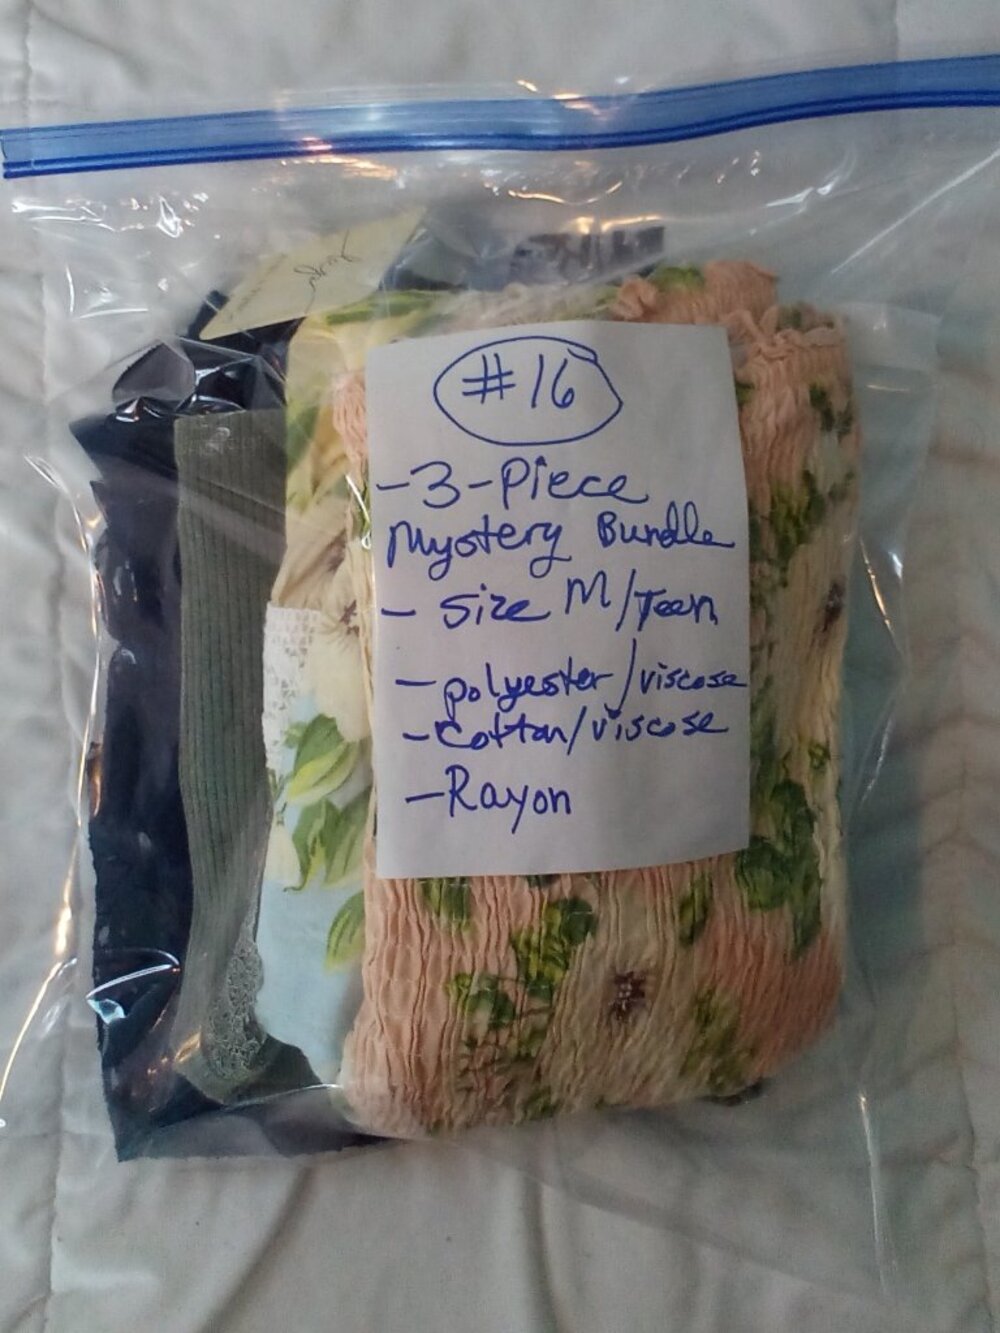 #16
-3-Piece
Mystery Bundle
- Size M/Teen
- polyester/viscose
- Cotton/viscose
- Rayon